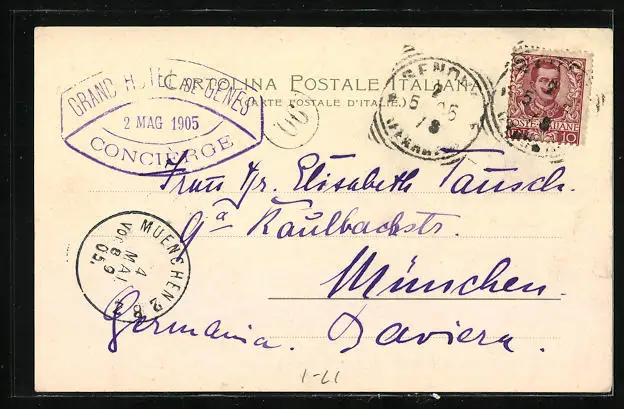 CARTOLINA POSTALE ITALIANA
(CARTE POSTALE D'ITALIE)
GRAND HOTEL DE GÊNES
2 MAG 1905
CONCIÈRGE
GENOVA
2
5 05
POSTE ITALIANE
10
Frau Dr. Elisabeth Tausch.
9a Kaulbachstr.
München.
Germania. Baviera.
MUENCHEN 2 B.Z.
4 MAI
VOR 8-9
05.
1-LI